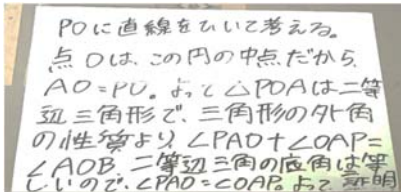 POに直線をひいて考える。
点Oは、この円の中点だから、
AO=PO。よって△POAは二等
辺三角形で、三角形の外角
の性質より、∠PAO+∠OAP=
∠AOB。二等辺三角の底角は等
しいので、∠PAO=∠OAP。よって証明